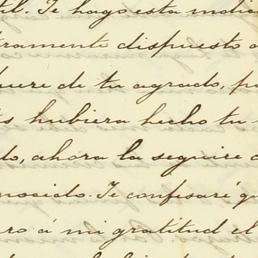 til. Te hago esta mani
tramente dispuesto a
quere de tu agrado, po
és hubiera hecho tu
do, ahora la seguire
nocido. Te confesaré q
ro á mi gratitud el